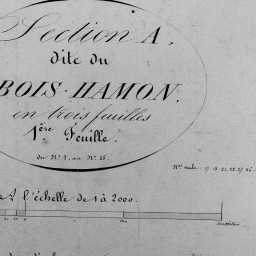 Section A,
dite du
BOIS-HAMON.
en trois feuilles
1ère Feuille.
du Nº 1, au Nº
à l'échelle de 1 à 2000.